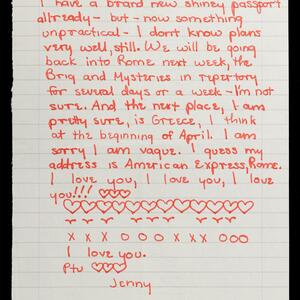 I have a brand new shiney passport
allready - but - now something
unpractical - I dont know plans
very well, still. We will be going
back into Rome next week, the
Brig and Mysteries in repertory
for several days or a week - I'm not
sure. And the next place, I am
pretty sure, is Greece, I think
at the beginning of April. I am
sorry I am vague. I guess my
address is American Express, Rome.
I love you, I love you, I love
you!!!
x x x o o o x x x o o o
I love you.
Jenny